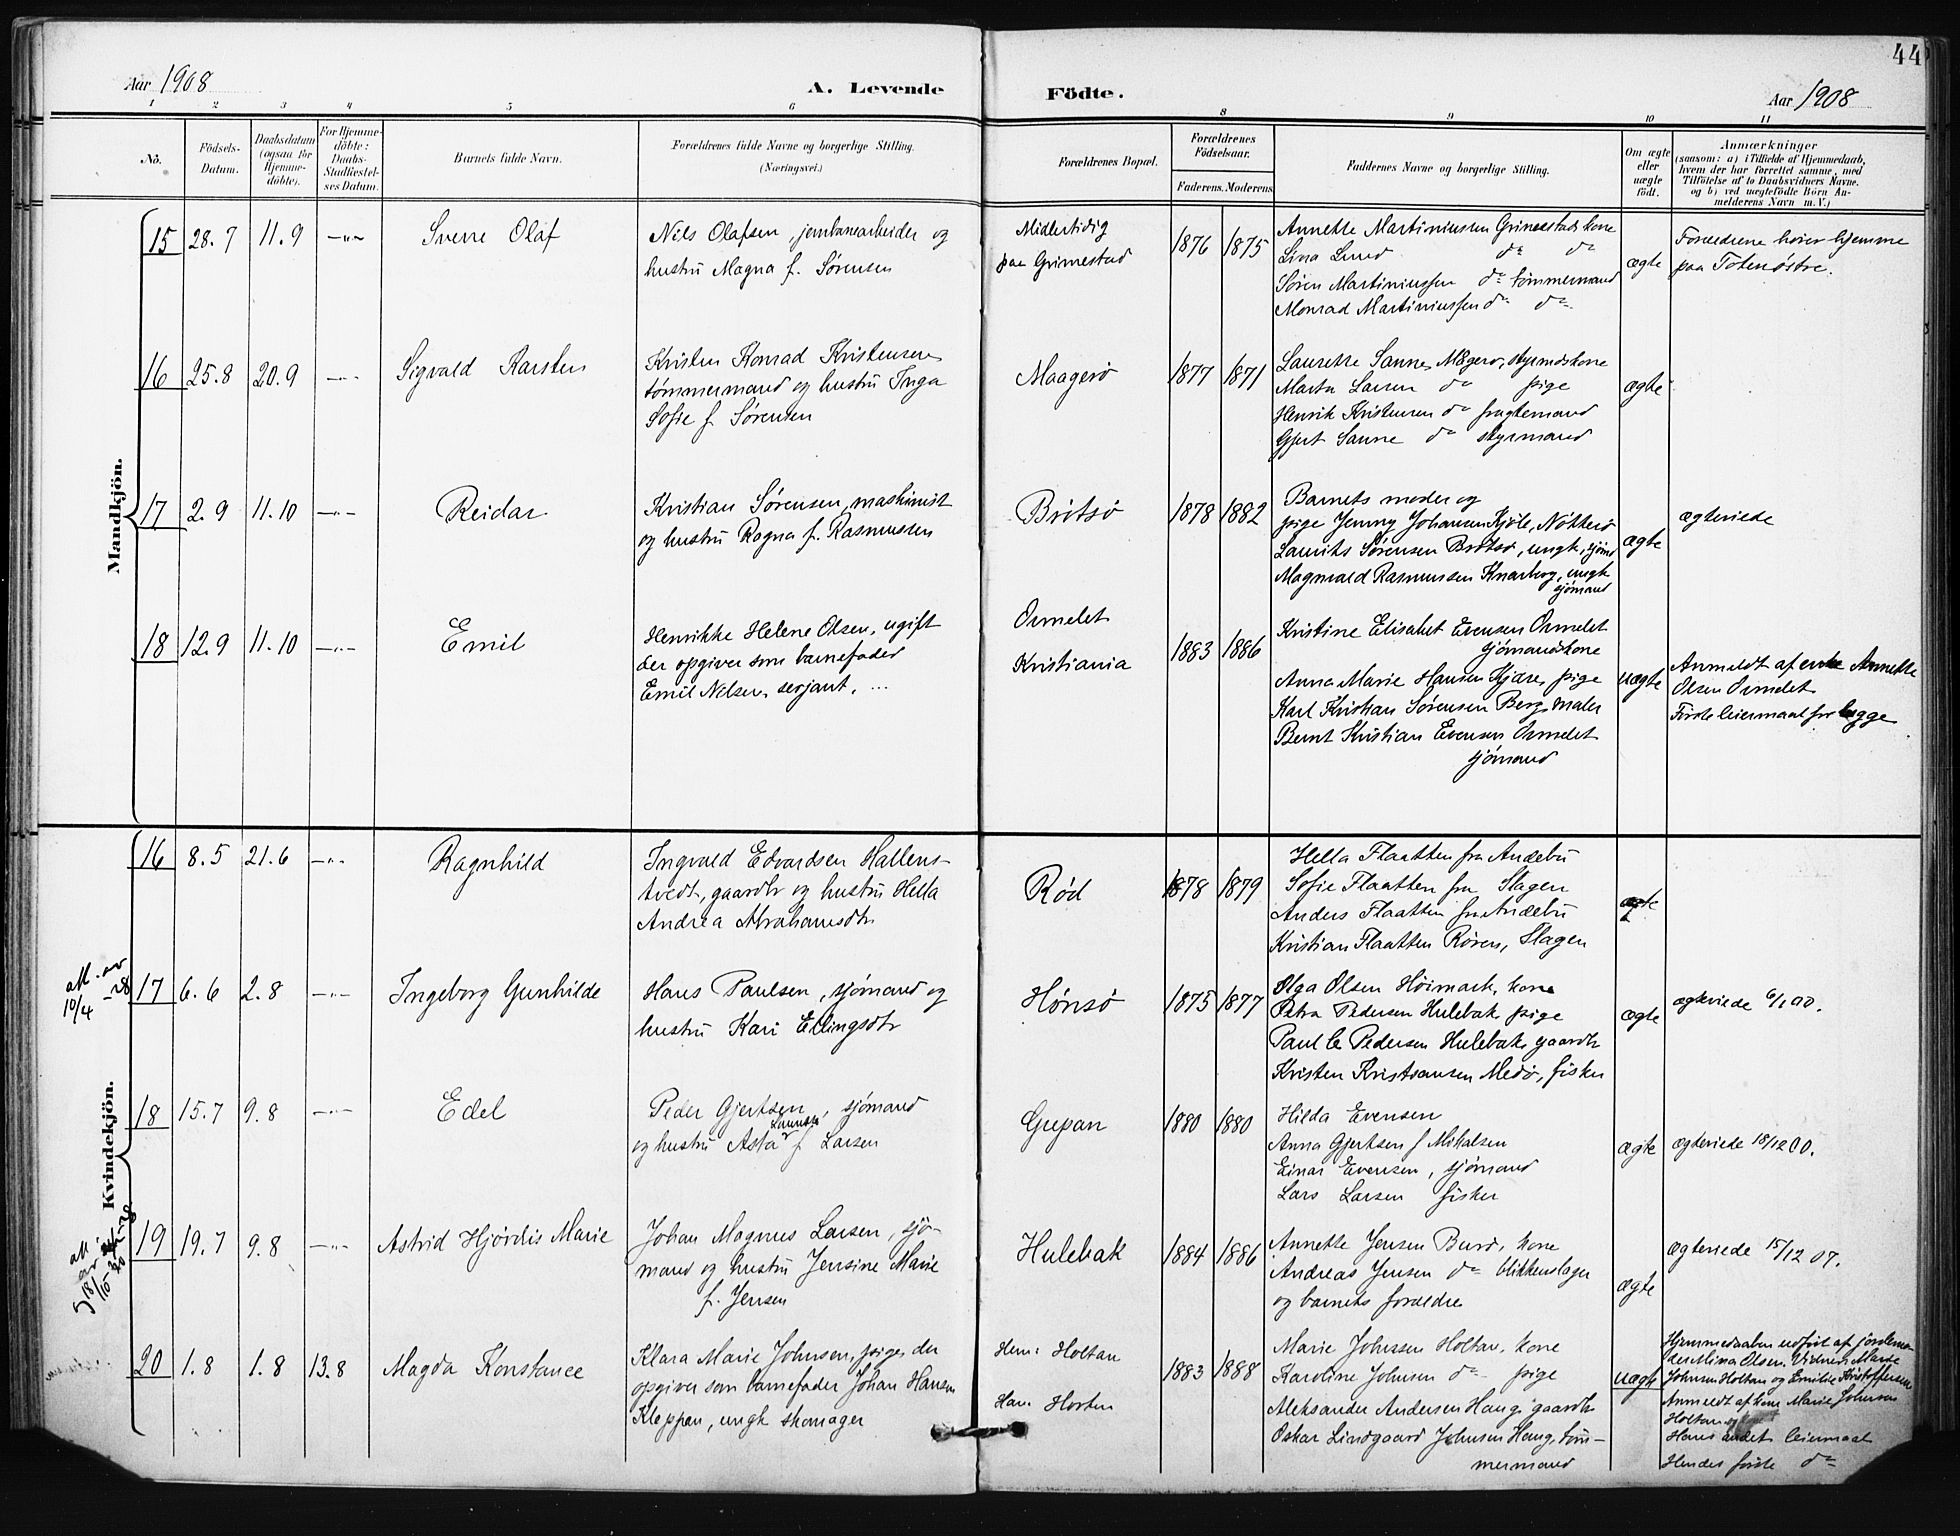 44
Aar 1908
A. Levende
Födte.
Aar 1908
1 2 3 4 5 6 8 9 10 11
No.
Födsels-Datum.
Daabsdatum (ogsaa for Hjemme-döbte).
For Hjemme-döbte: Daabs-Stadfæstel-ses Datum.
Barnets fulde Navn.
Forældrenes fulde Navne og borgerlige Stilling.
(Næringsvei.)
Forældrenes Bopæl.
Forældrenes Födselsaar.
Faderens. Moderens
Faddernes Navne og borgerlige Stilling.
Om ægte eller uægte födt.
Anmærkninger
(saasom: a) i Tilfælde af Hjemmedaab,
hvem der har forrettet samme, med
Tilföielse af to Daabsvidners Navne.
og b) ved uægtefödte Börn An-
melderens Navn m. V.)
Mandkjön.
15 28.7 11.9 —"— Sverre Olaf
Nils Olafsen, jernbanearbeider og
hustru Magna f. Sørensen
Midlertidig
paa Grimestad
1876 1875
Annette Martiniussen Grimestad kone
Lina Lund do do
Søren Martiniussen do tømmermand
Monrad Martiniussen do do
ægte
Forældrene hører hjemme
paa Totenøstre.
16 25.8 20.9 —"— Sigvald Karsten
Kristen Konrad Kristensen
tømmermand og hustru Inga
Sofie f. Sørensen
Maagerø
1877 1871
Laurette Sanne, Magerø, styrmdskone
Marta Larsen do pige
Henrik Kristensen do fragtemand
Gjert Sanne do styrmand
ægte
17 2.9 11.10 —"— Reidar
Kristian Sørensen, maskinist
og hustru Ragna f. Rasmussen
Brøtsø
1878 1882
Barnets moder og
pige Jenny Johansen Kjøle, Nøtterø
Laurits Sørensen Brøtsø, ungk, sjømd
Magnvald Rasmussen Knarberg, ungk
sjømand
ægte
ægteviede
18 12.9 11.10 —"— Emil
Henrikke Helene Olsen, ugift
der opgiver som barnefader
Emil Nelsen, serjant. ...
Ormelet
Kristiania
1883 1886
Kristine Elisabet Evensen Ormelet
sjømandskone
Anna Marie Hansen Kjære, pige
Karl Kristian Sørensen Berg, maler
Bernt Kristian Evensen Ormelet
sjømand
uægte
Anmeldt af enke Annette
Olsen Ormelet
Første leiermaal for begge
Kvindekjön.
16 8.5 21.6 —"— Ragnhild
Ingvald Edvardsen Hallens-
tvedt, gaardbr og hustru Hella
Andrea Abrahamsdtr
Rød
1878 1879
Hella Flaatten fra Andebu
Sofie Flaatten fra Slagen
Anders Flaatten fra Andebu
Kristian Flaatten Røren, Slagen
ægte
att. av
10/4 -28
17 6.6 2.8 —"— Ingeborg Gunhilde
Hans Paulsen, sjømand og
hustru Kari Ellingsdtr
Hønsø
1875 1877
Olga Olsen Høimark, kone
Petra Pedersen Hulebak, pige
Paul C Pedersen Hulebak, gaardbr
Kristen Kristiansen Medø, fisker
ægte
ægteviede 6/1 00.
18 15.7 9.8 —"— Edel
Peder Gjertsen, sjømand
og hustru Asta f. Larsen
Gupan
1880 1880
Hilda Evensen
Anna Gjertsen f Mikalsen
Einar Evensen, sjømand
Lars Larsen fisker
ægte
ægteviede 18/12 00.
att.
av
19 19.7 9.8 —"— Astrid Hjørdis Marie
Johan Magnus Larsen, sjø-
mand og hustru Jensine Marie
f. Jensen
Hulebak
1884 1886
Annette Jensen Burø, kone
Andreas Jensen do blikkenslager
og barnets forældre
ægte
ægteviede 15/12 07.
20 1.8 1.8 13.8 Magda Konstance
Klara Marie Johnsen, pige, der
opgiver som barnefader Johan Hansen
Kleppan, ungk skomager
Hun: Holtan
Han: Horten
1883 1888
Marie Johnsen Holtan, kone
Karoline Johnsen do pige
Aleksander Andersen Haug, gaardbr
Oskar Lindgaard Johnsen Haug, tøm-
mermand
uægte
Hjemmedaaben udført af jordemo-
der Mina Olsen. Vidner: Marie
Johnsen Holtan og Emilie Kristoffersen
Anmeldt af kone Marie Johnsen
Holtan
Hans andet leiermaal
Hendes første do